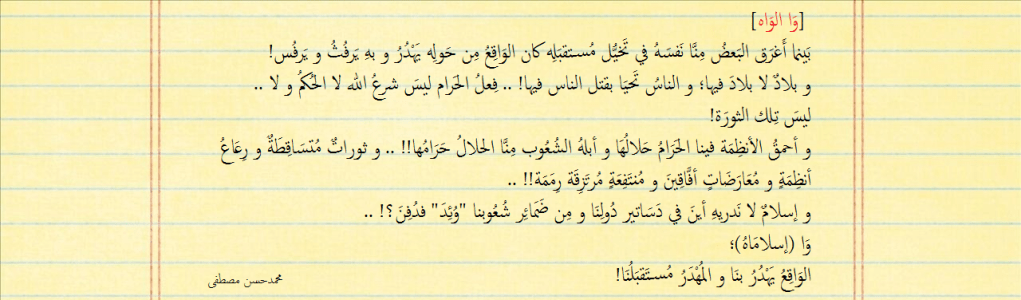 [وَا الوَاه]
بَينما أَغرَق البَعضُ مِنَّا نَفسَهُ في تَخيُّل مُستقبَلِه كان الوَاقِعُ مِن حَولِه يَهْدُرُ و بهِ يَرفُثُ و يَرفُس!
و بلادٌ لا بلادَ فيها؛ و الناسُ تَحيَا بقتل الناس فيها! .. فِعلُ الحَرام ليسَ شرعُ الله لا الحُكمُ و لا ..
ليسَ تِلك الثورَة!
و أحمقُ الأنظِمَة فينا الحَرَامُ حَلالُهَا و أبلهُ الشُعُوب مِنَّا الحلالُ حَرَامُها!! .. و ثوراتٌ مُتسَاقِطَةٌ و رِعَاعُ
أنظِمَةٍ و مُعَارَضَاتٍ أفَّاقِينَ و مُنتَفِعَةٍ مُرتَزِقَة رِمَمَة!! ..
و إسلامٌ لا نَدريهِ أينَ في دَسَاتير دُولِنَا و مِن ضَمَائِر شُعُوبنا "وُئِدَ" فدُفِنَ ؟! ..
وَا (إسلامَاهُ)؛
الوَاقِعُ يَهْدُرُ بنَا و المُهْدَرُ مُستَقبَلُنَا!
محمدحسن مصطفى